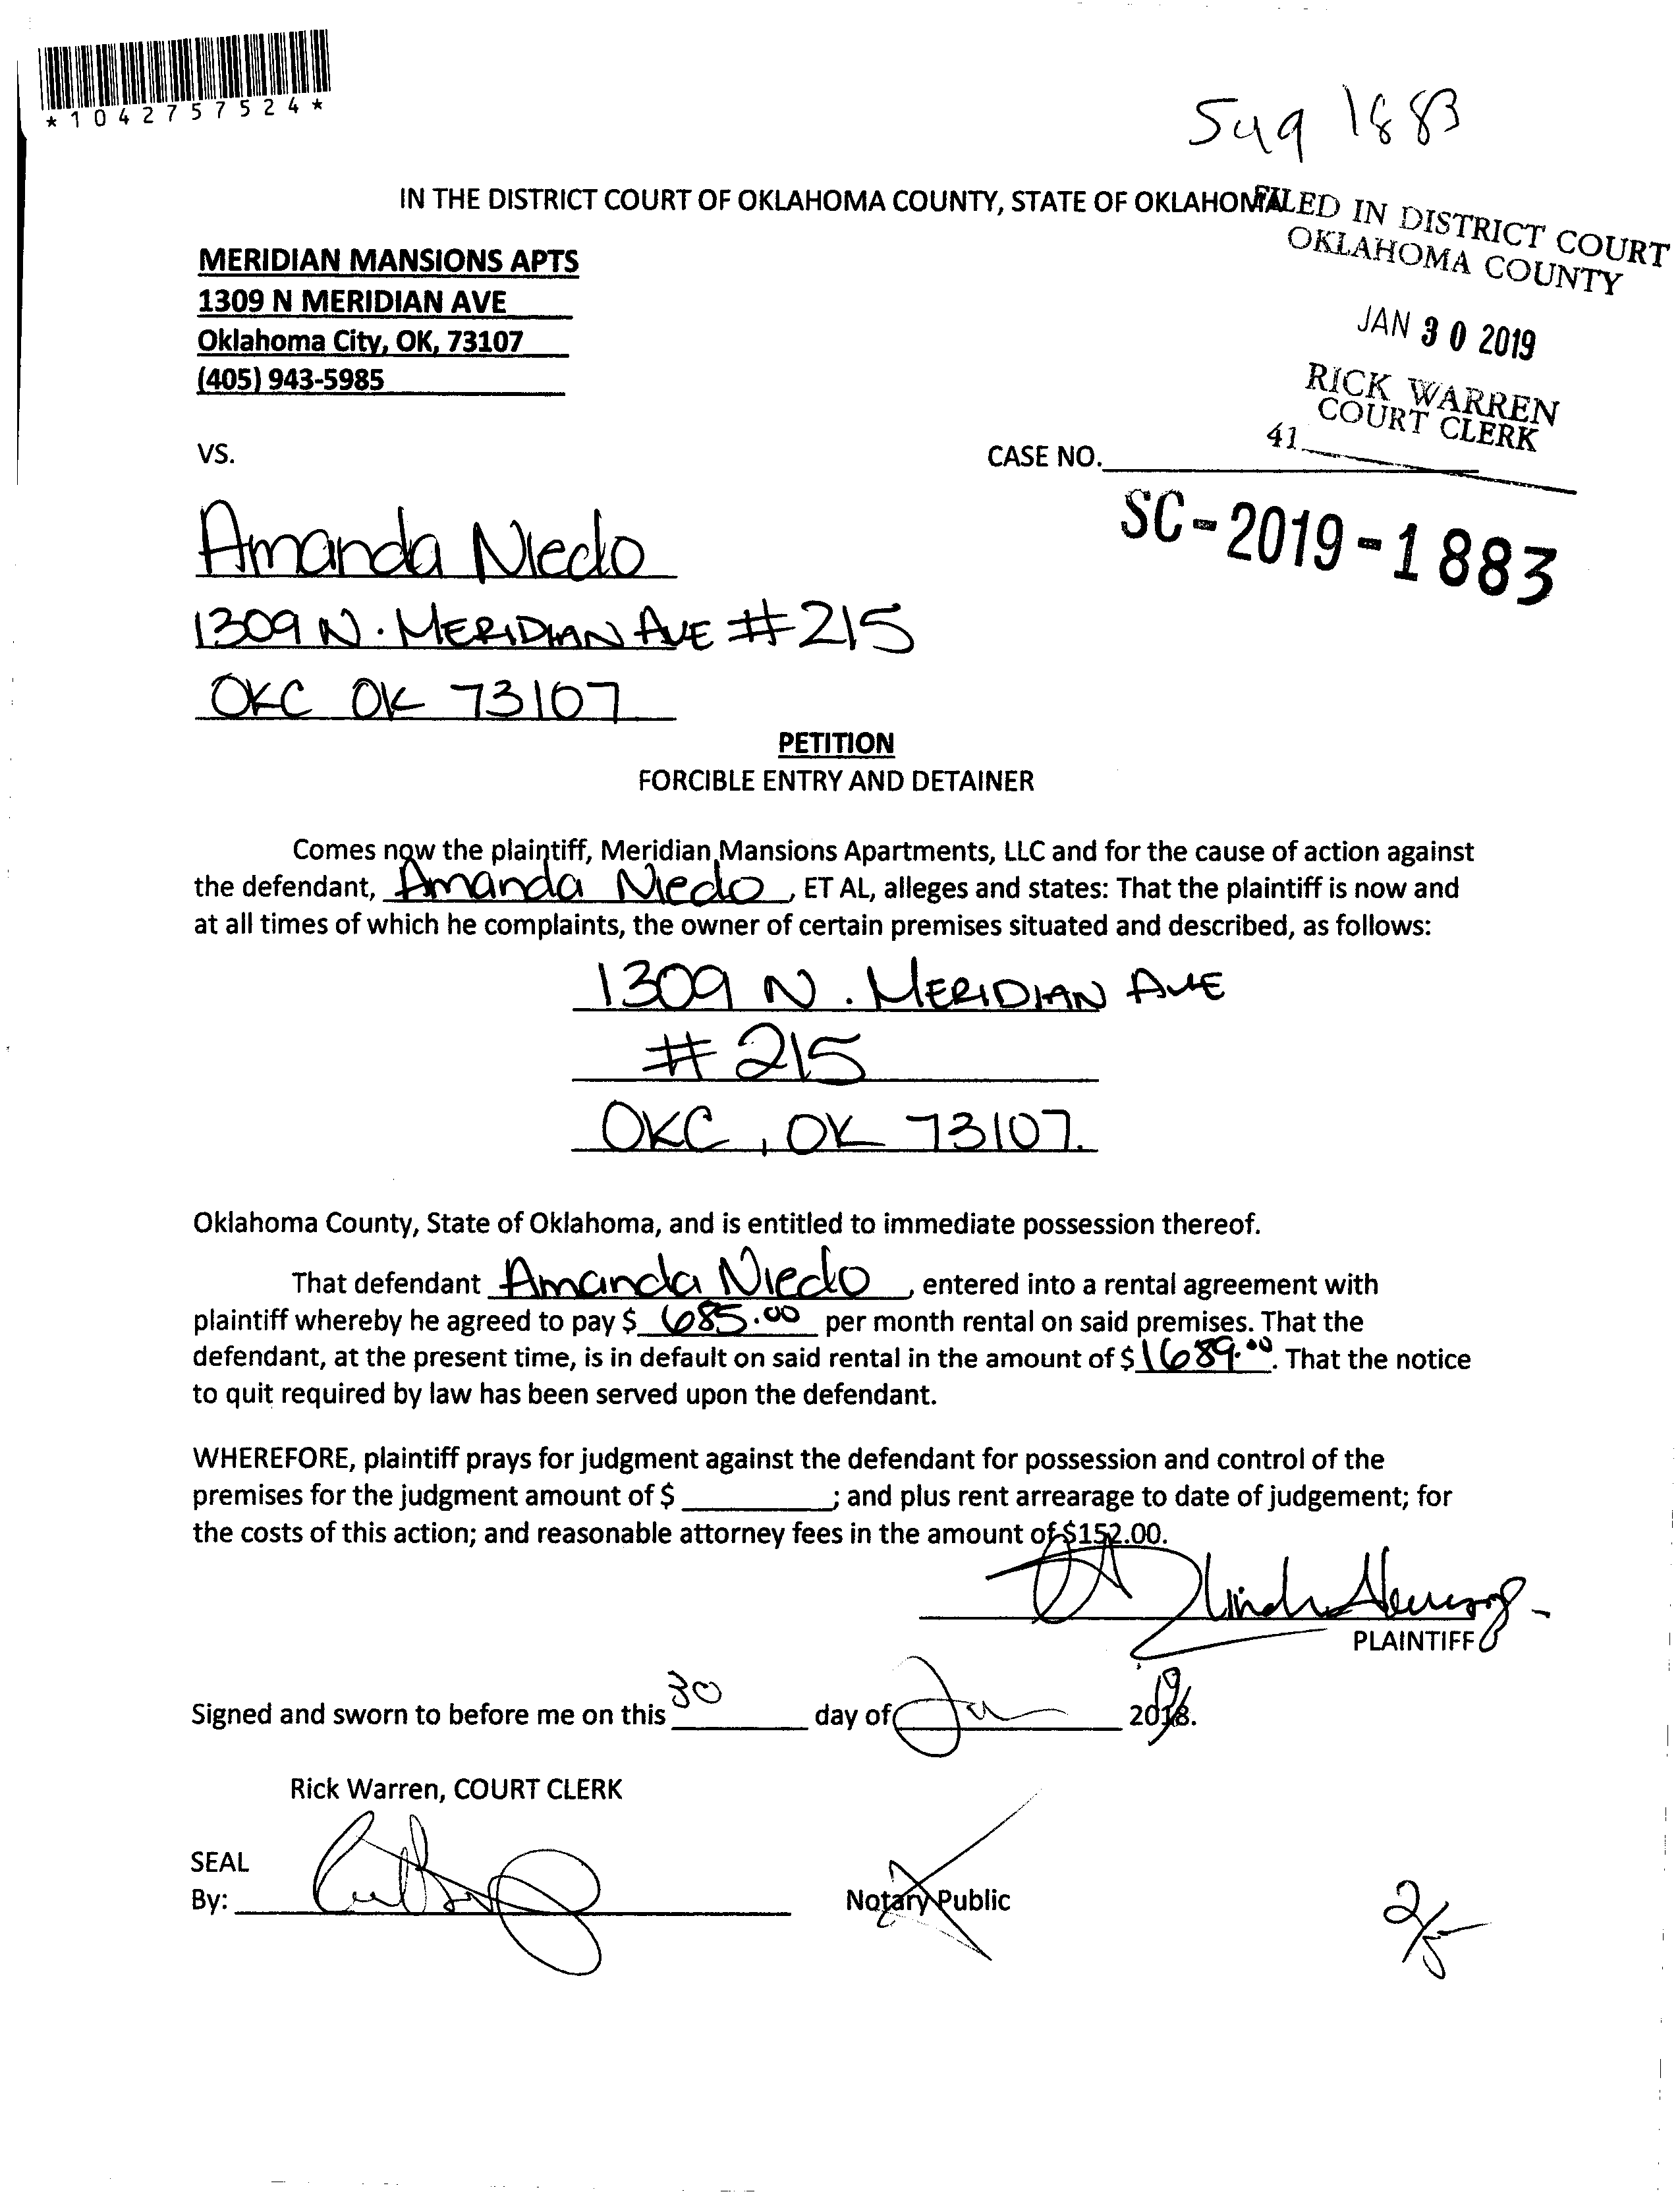 *1042757524*
1883
IN THE DISTRICT COURT OF OKLAHOMA COUNTY, STATE OF OKLAHOMA
FILED IN DISTRICT COURT
OKLAHOMA COUNTY
JAN 30 2019
RICK WARREN
COURT CLERK
41
MERIDIAN MANSIONS APTS
1309 N MERIDIAN AVE
Oklahoma City, OK, 73107
(405) 943-5985
VS.
CASE NO.
SC-2019-1883
Amanda Niedo
1309 N. MERIDIAN AVE #215
OKC OK 73107
PETITION
FORCIBLE ENTRY AND DETAINER
Comes now the plaintiff, Meridian Mansions Apartments, LLC and for the cause of action against
the defendant, Amanda Niedo, ET AL, alleges and states: That the plaintiff is now and
at all times of which he complaints, the owner of certain premises situated and described, as follows:
1309 N. MERIDIAN AVE
#215
OKC, OK 73107.
Oklahoma County, State of Oklahoma, and is entitled to immediate possession thereof.
That defendant Amanda Niedo, entered into a rental agreement with
plaintiff whereby he agreed to pay $ 685.00 per month rental on said premises. That the
defendant, at the present time, is in default on said rental in the amount of $1689.00. That the notice
to quit required by law has been served upon the defendant.
WHEREFORE, plaintiff prays for judgment against the defendant for possession and control of the
premises for the judgment amount of $ ; and plus rent arrearage to date of judgement; for
the costs of this action; and reasonable attorney fees in the amount of $152.00.
PLAINTIFF
Signed and sworn to before me on this 30 day of Jan 2019.
Rick Warren, COURT CLERK
SEAL
By:
Notary Public
2/5